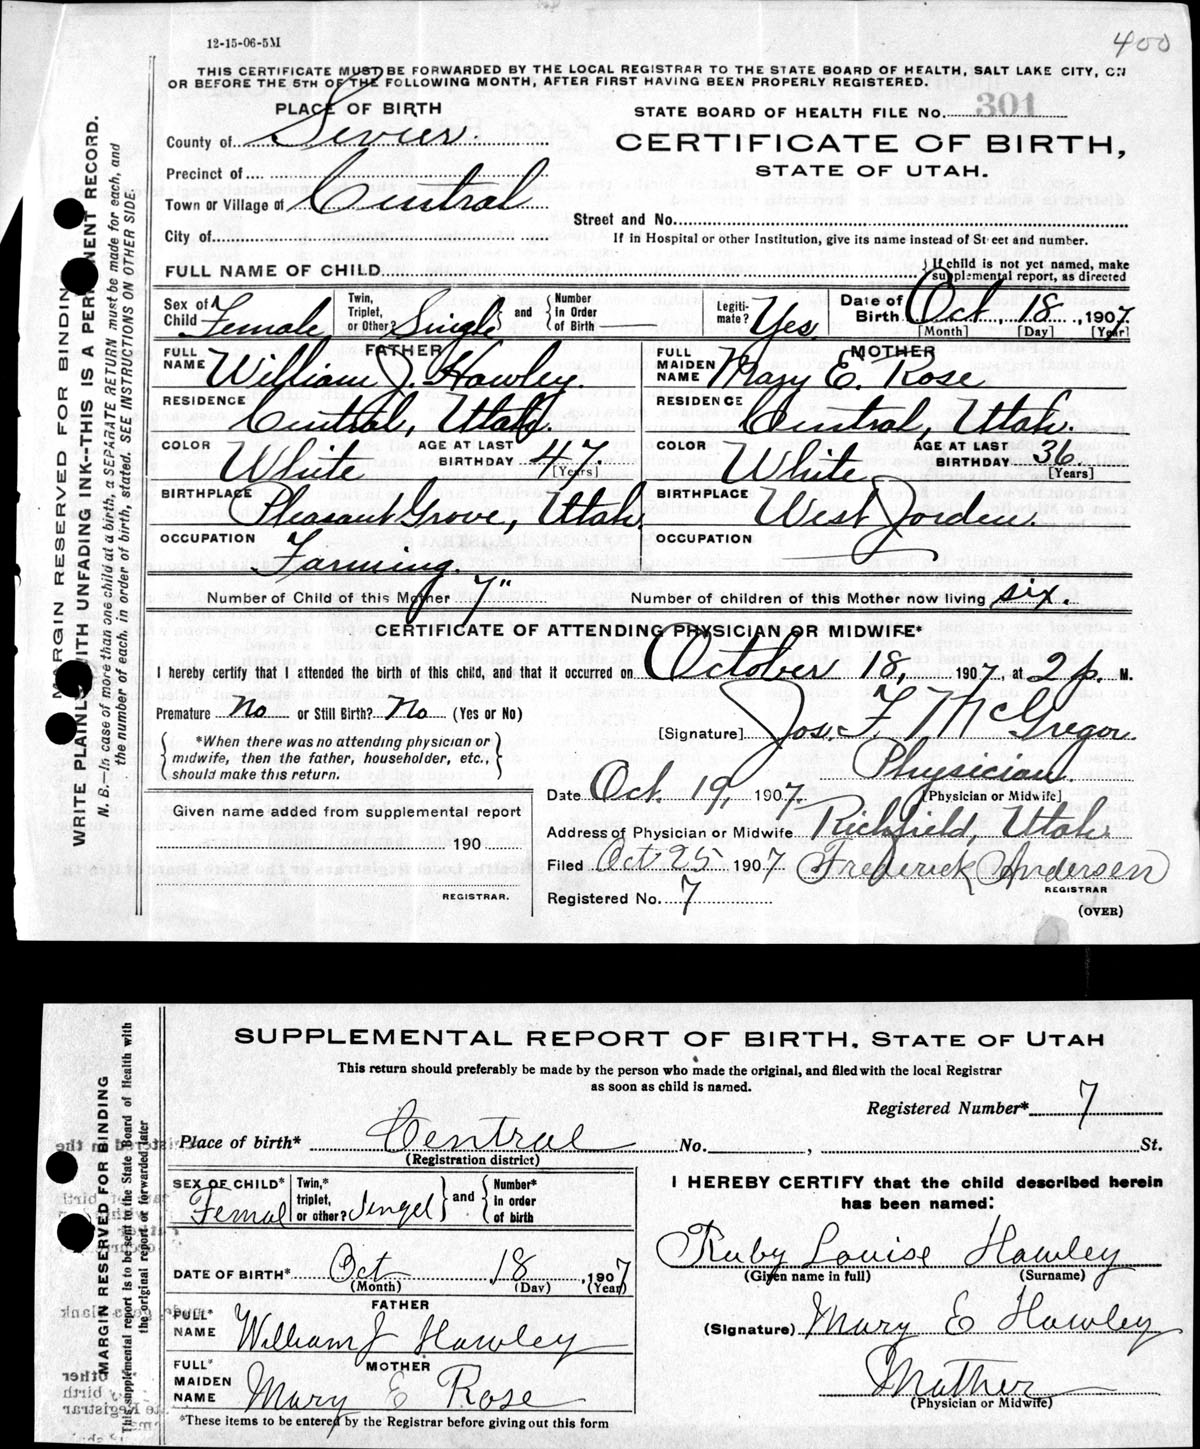 12-15-06-5M
400
THIS CERTIFICATE MUST BE FORWARDED BY THE LOCAL REGISTRAR TO THE STATE BOARD OF HEALTH, SALT LAKE CITY, ON
OR BEFORE THE 5TH OF THE FOLLOWING MONTH, AFTER FIRST HAVING BEEN PROPERLY REGISTERED.
PLACE OF BIRTH
STATE BOARD OF HEALTH FILE No. 301
County of Sevier.
CERTIFICATE OF BIRTH,
STATE OF UTAH.
Precinct of
Town or Village of Central
Street and No.
City of
If in Hospital or other Institution, give its name instead of Street and number.
FULL NAME OF CHILD
{If child is not yet named, make
supplemental report, as directed
Sex of Child Female
Twin, Triplet, or Other? Single and {Number In Order of Birth
Legitimate? Yes.
Date of Birth Oct. 18, 1907.
[Month] [Day] [Year]
FATHER
FULL NAME William J. Hawley.
RESIDENCE Central, Utah.
COLOR White AGE AT LAST BIRTHDAY 47. [Years]
BIRTHPLACE Pleasant Grove, Utah.
OCCUPATION Farming.
MOTHER
FULL MAIDEN NAME Mary E. Rose
RESIDENCE Central, Utah.
COLOR White AGE AT LAST BIRTHDAY 36 [Years]
BIRTHPLACE West Jorden.
OCCUPATION
Number of Child of this Mother 7" Number of children of this Mother now living six.
CERTIFICATE OF ATTENDING PHYSICIAN OR MIDWIFE*
I hereby certify that I attended the birth of this child, and that it occurred on October 18, 1907, at 2 p. M.
Premature No or Still Birth? No (Yes or No)
[Signature] Jos. F. McGregor
{*When there was no attending physician or
midwife, then the father, householder, etc.,
should make this return.}
Physician.
[Physician or Midwife]
Date Oct. 19, 1907.
Given name added from supplemental report
190
REGISTRAR.
Address of Physician or Midwife Richfield, Utah.
Filed Oct 25 1907 Frederick Andersen
REGISTRAR
Registered No. 7
(OVER)
MARGIN RESERVED FOR BINDING
WRITE PLAINLY WITH UNFADING INK--THIS IS A PERMANENT RECORD.
N. B.--In case of more than one child at a birth, a SEPARATE RETURN must be made for each, and
the number of each, in order of birth, stated. SEE INSTRUCTIONS ON OTHER SIDE.
SUPPLEMENTAL REPORT OF BIRTH, STATE OF UTAH
This return should preferably be made by the person who made the original, and filed with the local Registrar
as soon as child is named.
Registered Number* 7
Place of birth* Central No. , St.
(Registration district)
SEX OF CHILD* Femal
Twin,* triplet, or other? Singel } and { Number* in order of birth
I HEREBY CERTIFY that the child described herein
has been named:
DATE OF BIRTH* Oct 18, 1907
(Month) (Day) (Year)
Ruby Louise Hawley
(Given name in full) (Surname)
FATHER
FULL* NAME William J Hawley
(Signature) Mary E Hawley
MOTHER
FULL* MAIDEN NAME Mary E Rose
Mother
(Physician or Midwife)
*These items to be entered by the Registrar before giving out this form
MARGIN RESERVED FOR BINDING
This supplemental report is to be sent to the State Board of Health with
the original report or forwarded later